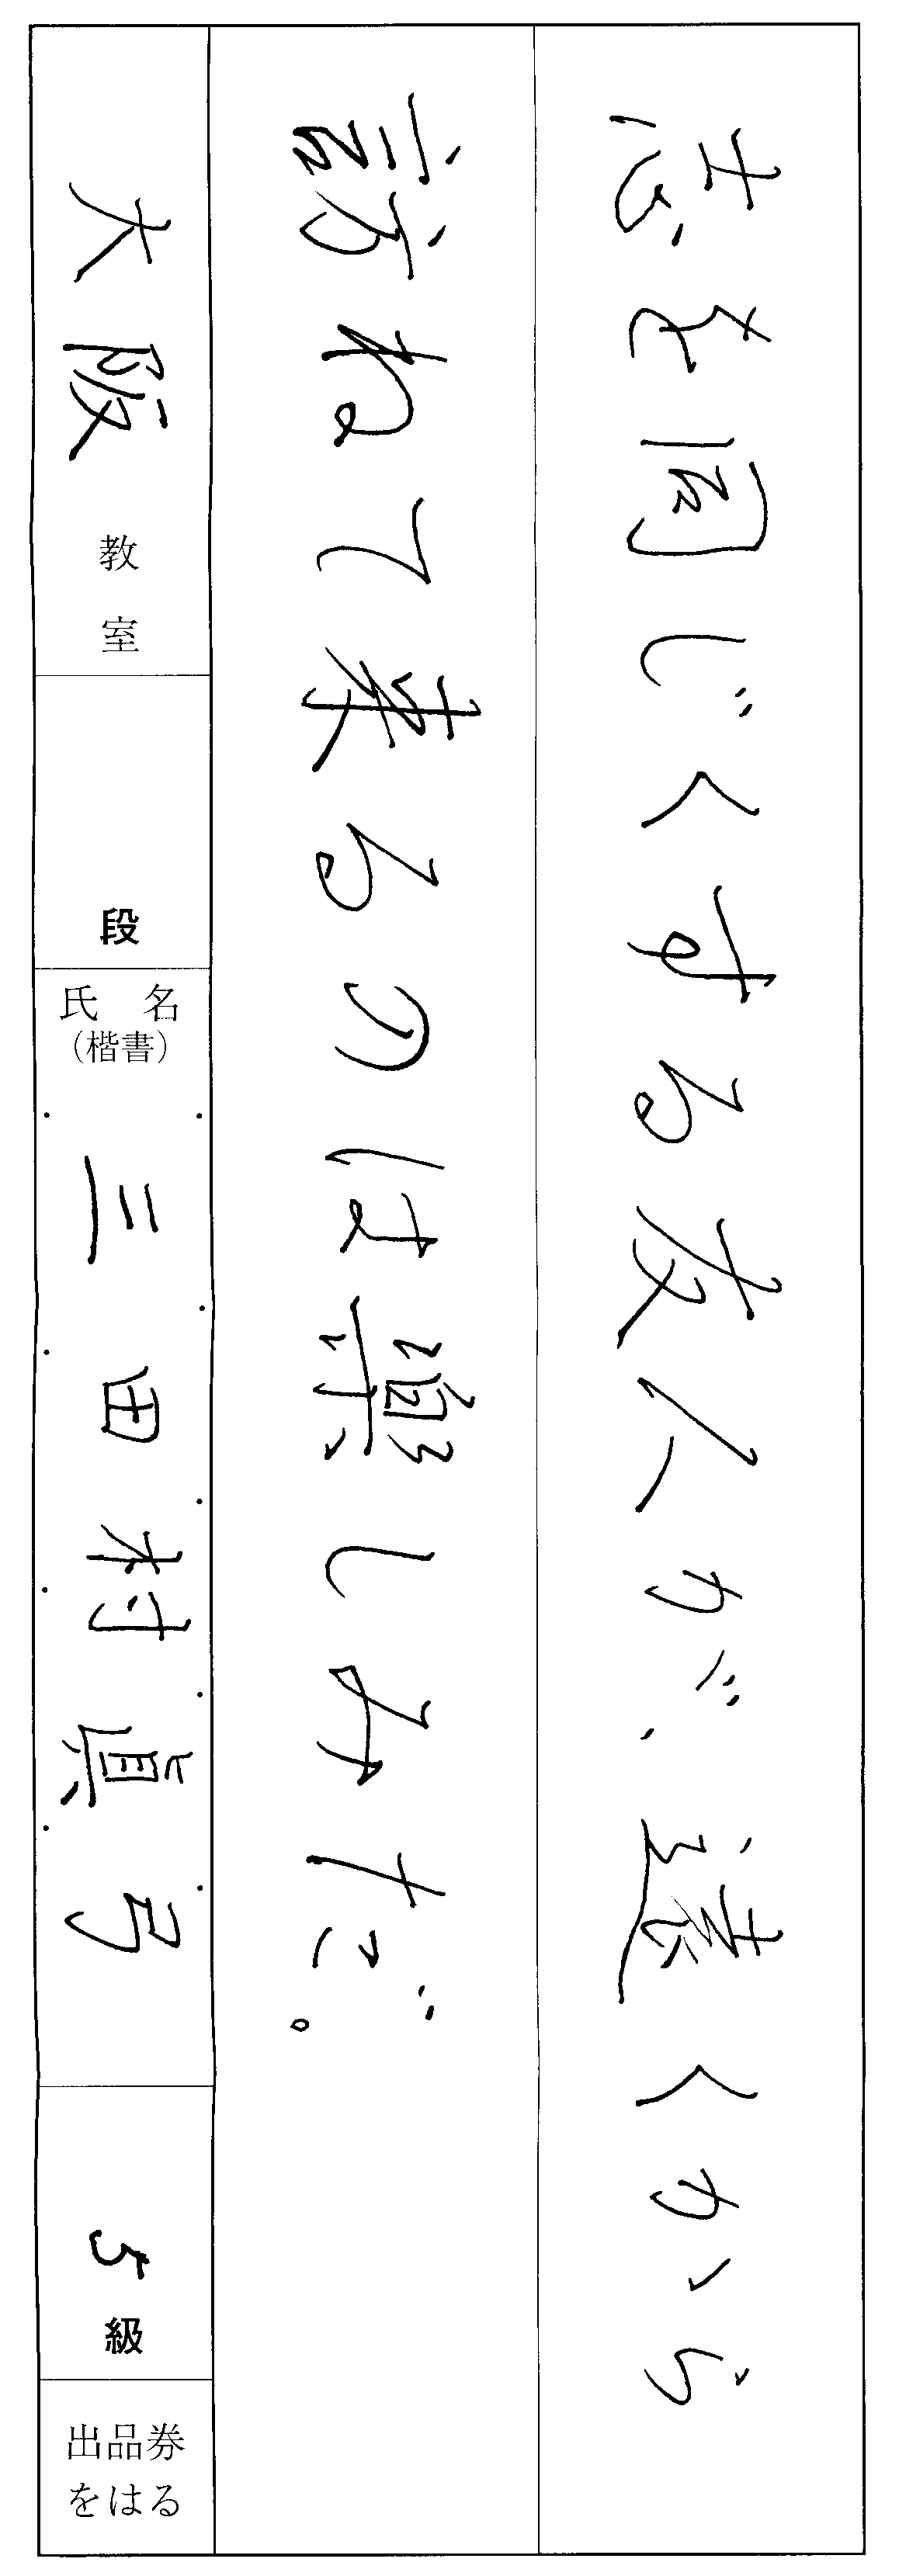 志を同じくする友人が、遠くから
訪ねて来るのは樂しみだ。
大阪教室
段
氏名
(楷書)
三田村眞弓
5級
出品券
をはる